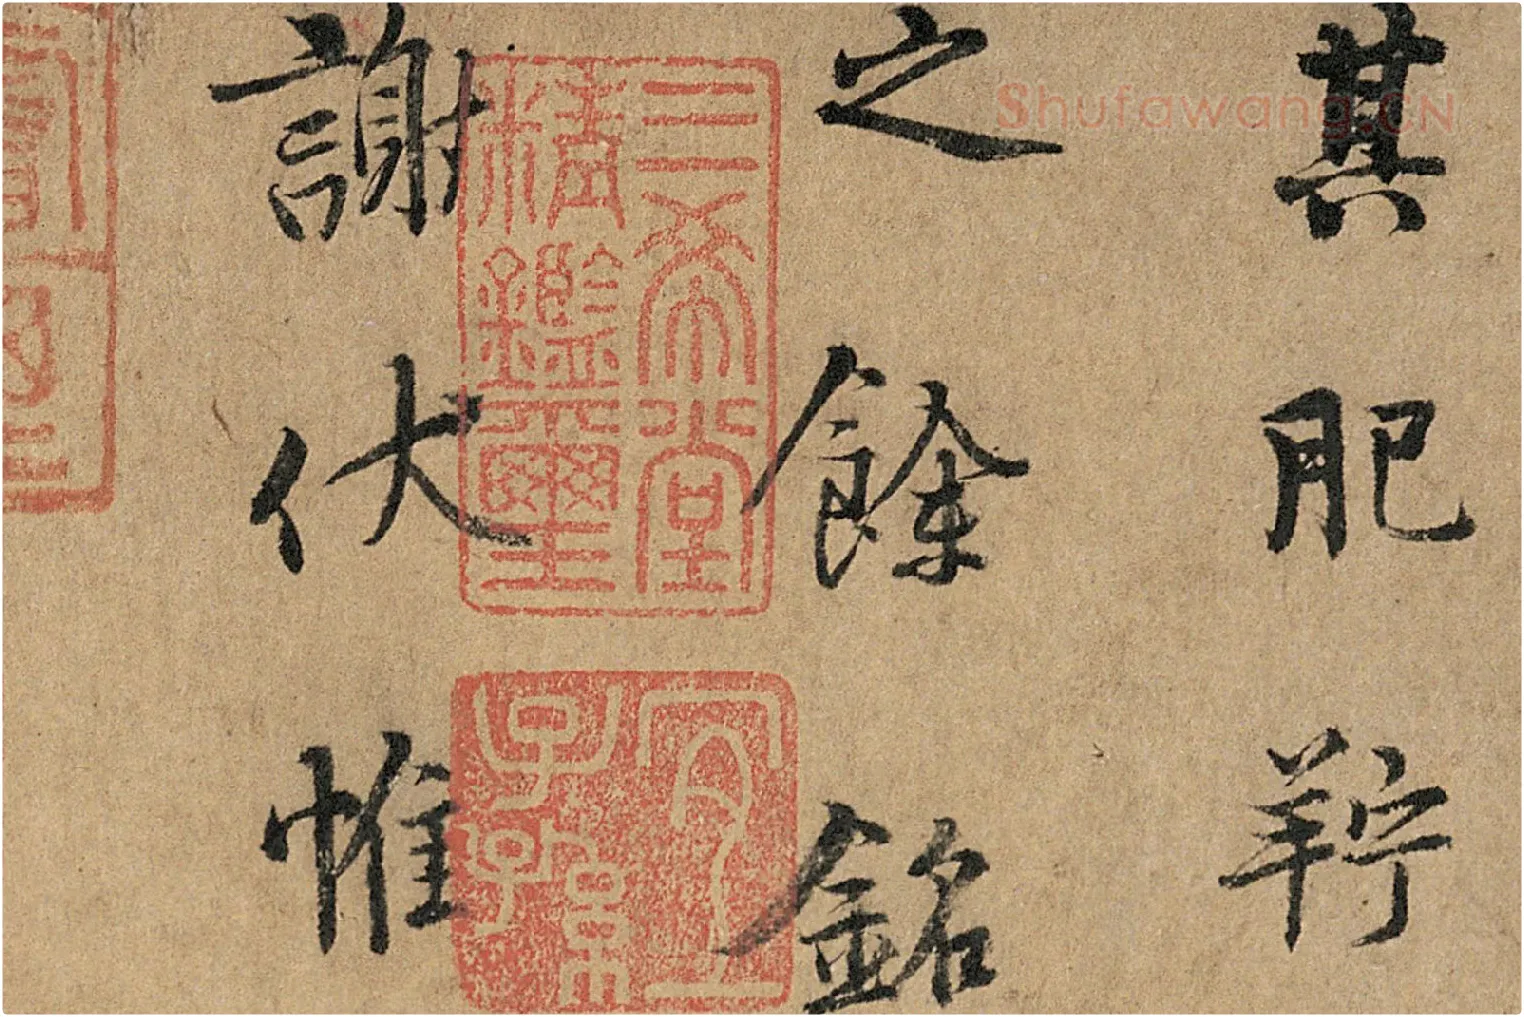 其肥羜
之餘銘
謝伏惟
三希堂
精鑑璽
宜子孫
Shufawang.CN